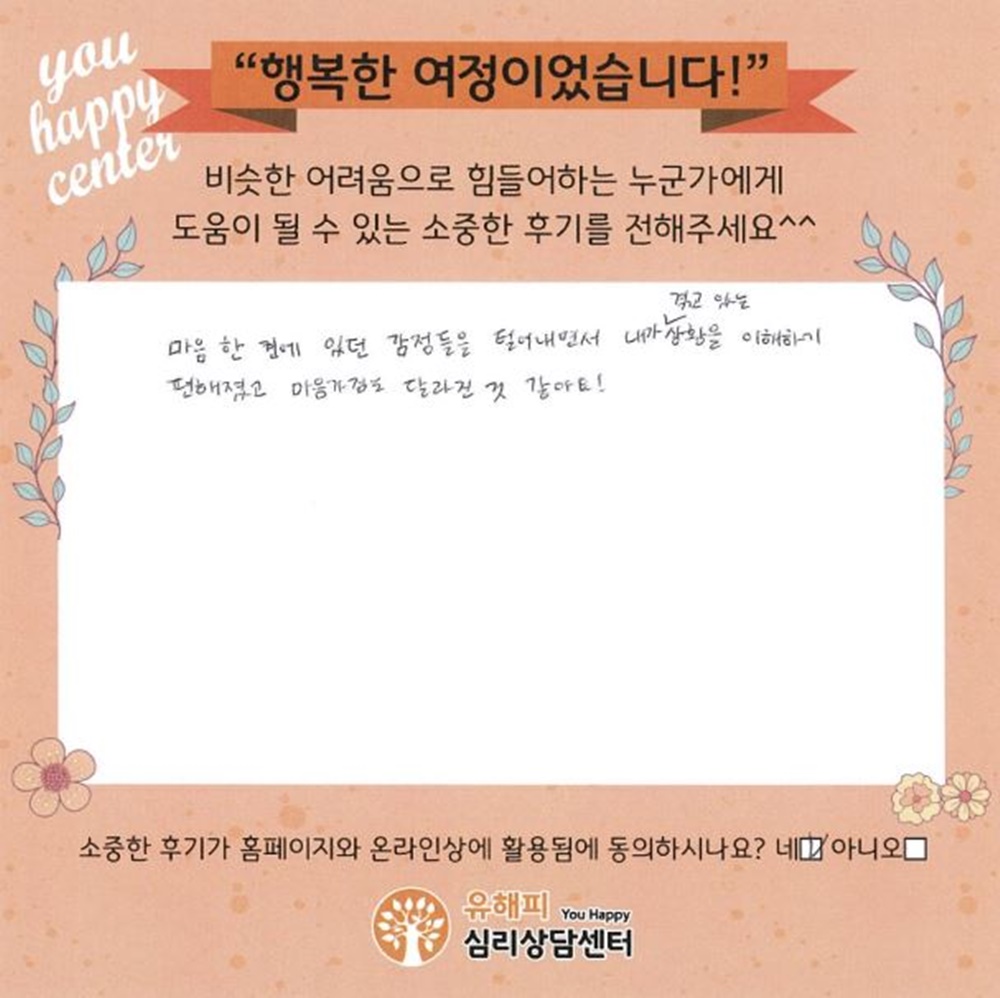 you
happy
center
“행복한 여정이었습니다!”
비슷한 어려움으로 힘들어하는 누군가에게
도움이 될 수 있는 소중한 후기를 전해주세요^^
겪고 있는
마음 한 켠에 있던 감정들을 털어내면서 내가 상황을 이해하기
편해졌고 마음가짐도 달라진 것 같아요!
소중한 후기가 홈페이지와 온라인상에 활용됨에 동의하시나요? 네 아니오
유해피 You Happy
심리상담센터